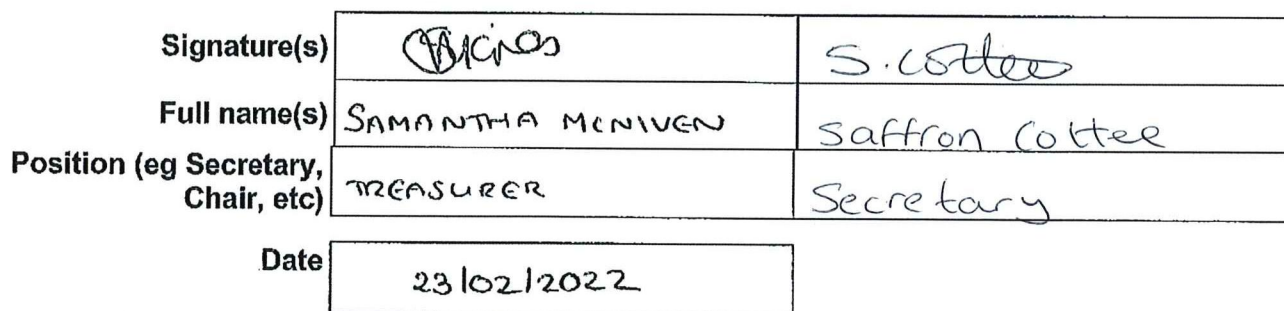 Signature(s) S. Cottee
Full name(s) SAMANTHA MCNIVEN Saffron Cottee
Position (eg Secretary,
Chair, etc) TREASURER Secretary
Date 23/02/2022